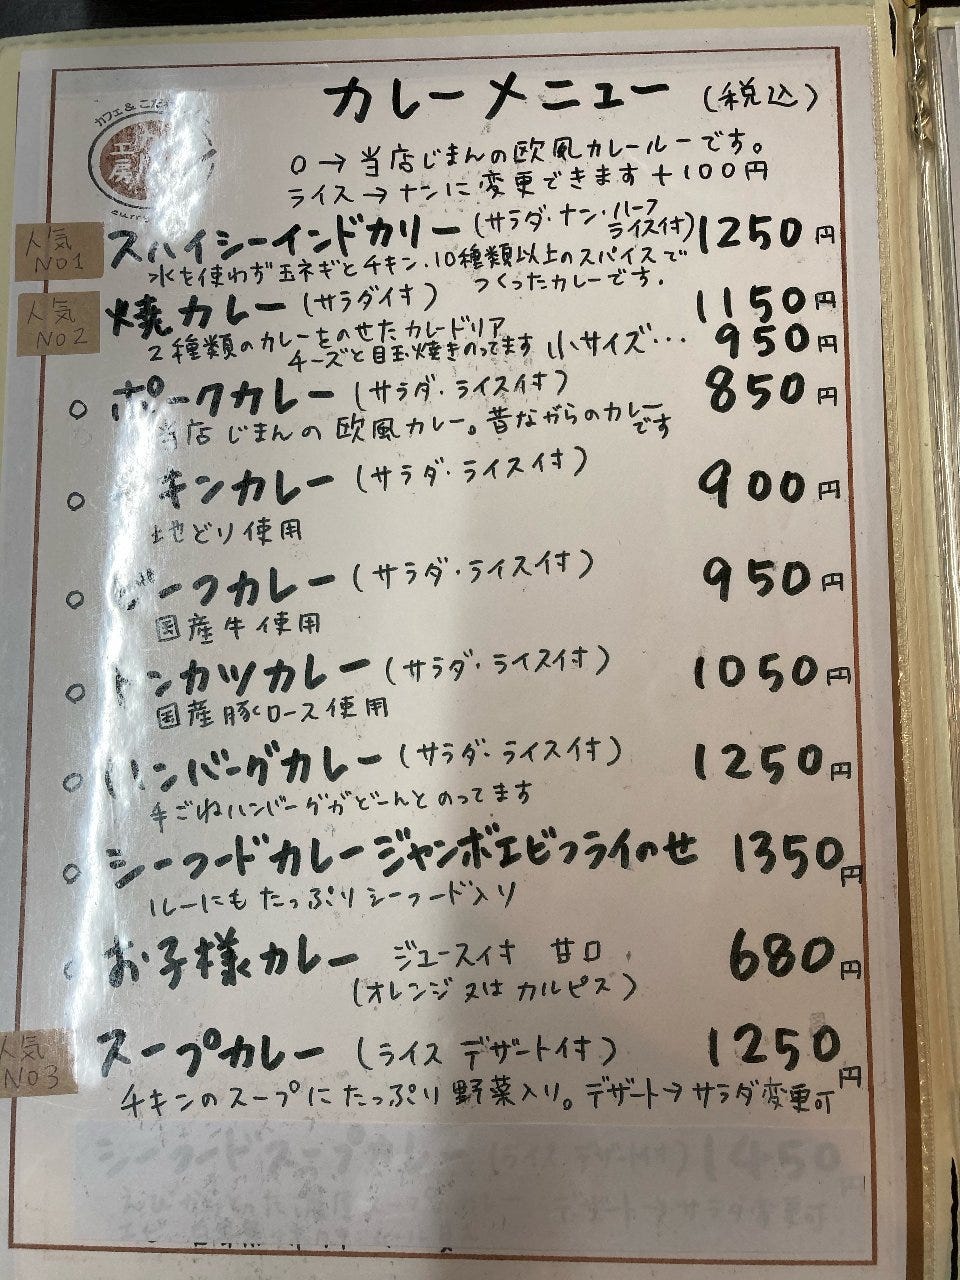 カレーメニュー (税込)
カフェ&こだ
工房
curry
○→当店じまんの欧風カレールーです。
ライス→ナンに変更できます+100円
人気 NO1
スパイシーインドカリー (サラダ・ナン・ハーフライス付) 1250円
水を使わず玉ネギとチキン、10種類以上のスパイスで
つくったカレーです.
人気 NO2
焼カレー (サラダ付) 1150円
2種類のカレーをのせたカレードリア
チーズと目玉焼きのってます 小サイズ… 950円
○ ポークカレー (サラダ・ライス付) 850円
当店じまんの欧風カレー。昔ながらのカレーです
○ キンカレー (サラダ・ライス付) 900円
地どり使用
○ ビーフカレー (サラダ・ライス付) 950円
国産牛使用
○ トンカツカレー (サラダ・ライス付) 1050円
国産豚ロース使用
○ ハンバーグカレー (サラダ・ライス付) 1250円
手ごねハンバーグがどーんとのってます
○ シーフードカレージャンボエビフライのせ 1350円
ルーにもたっぷりシーフード入り
○ お子様カレー ジュース付 甘口 680円
(オレンジ又はカルピス)
人気 NO3
スープカレー (ライス デザート付) 1250円
チキンのスープにたっぷり野菜入り。デザート→サラダ変更可
シーフードスープカレー (ライス デザート付) 1450
デザート→サラダ変更可